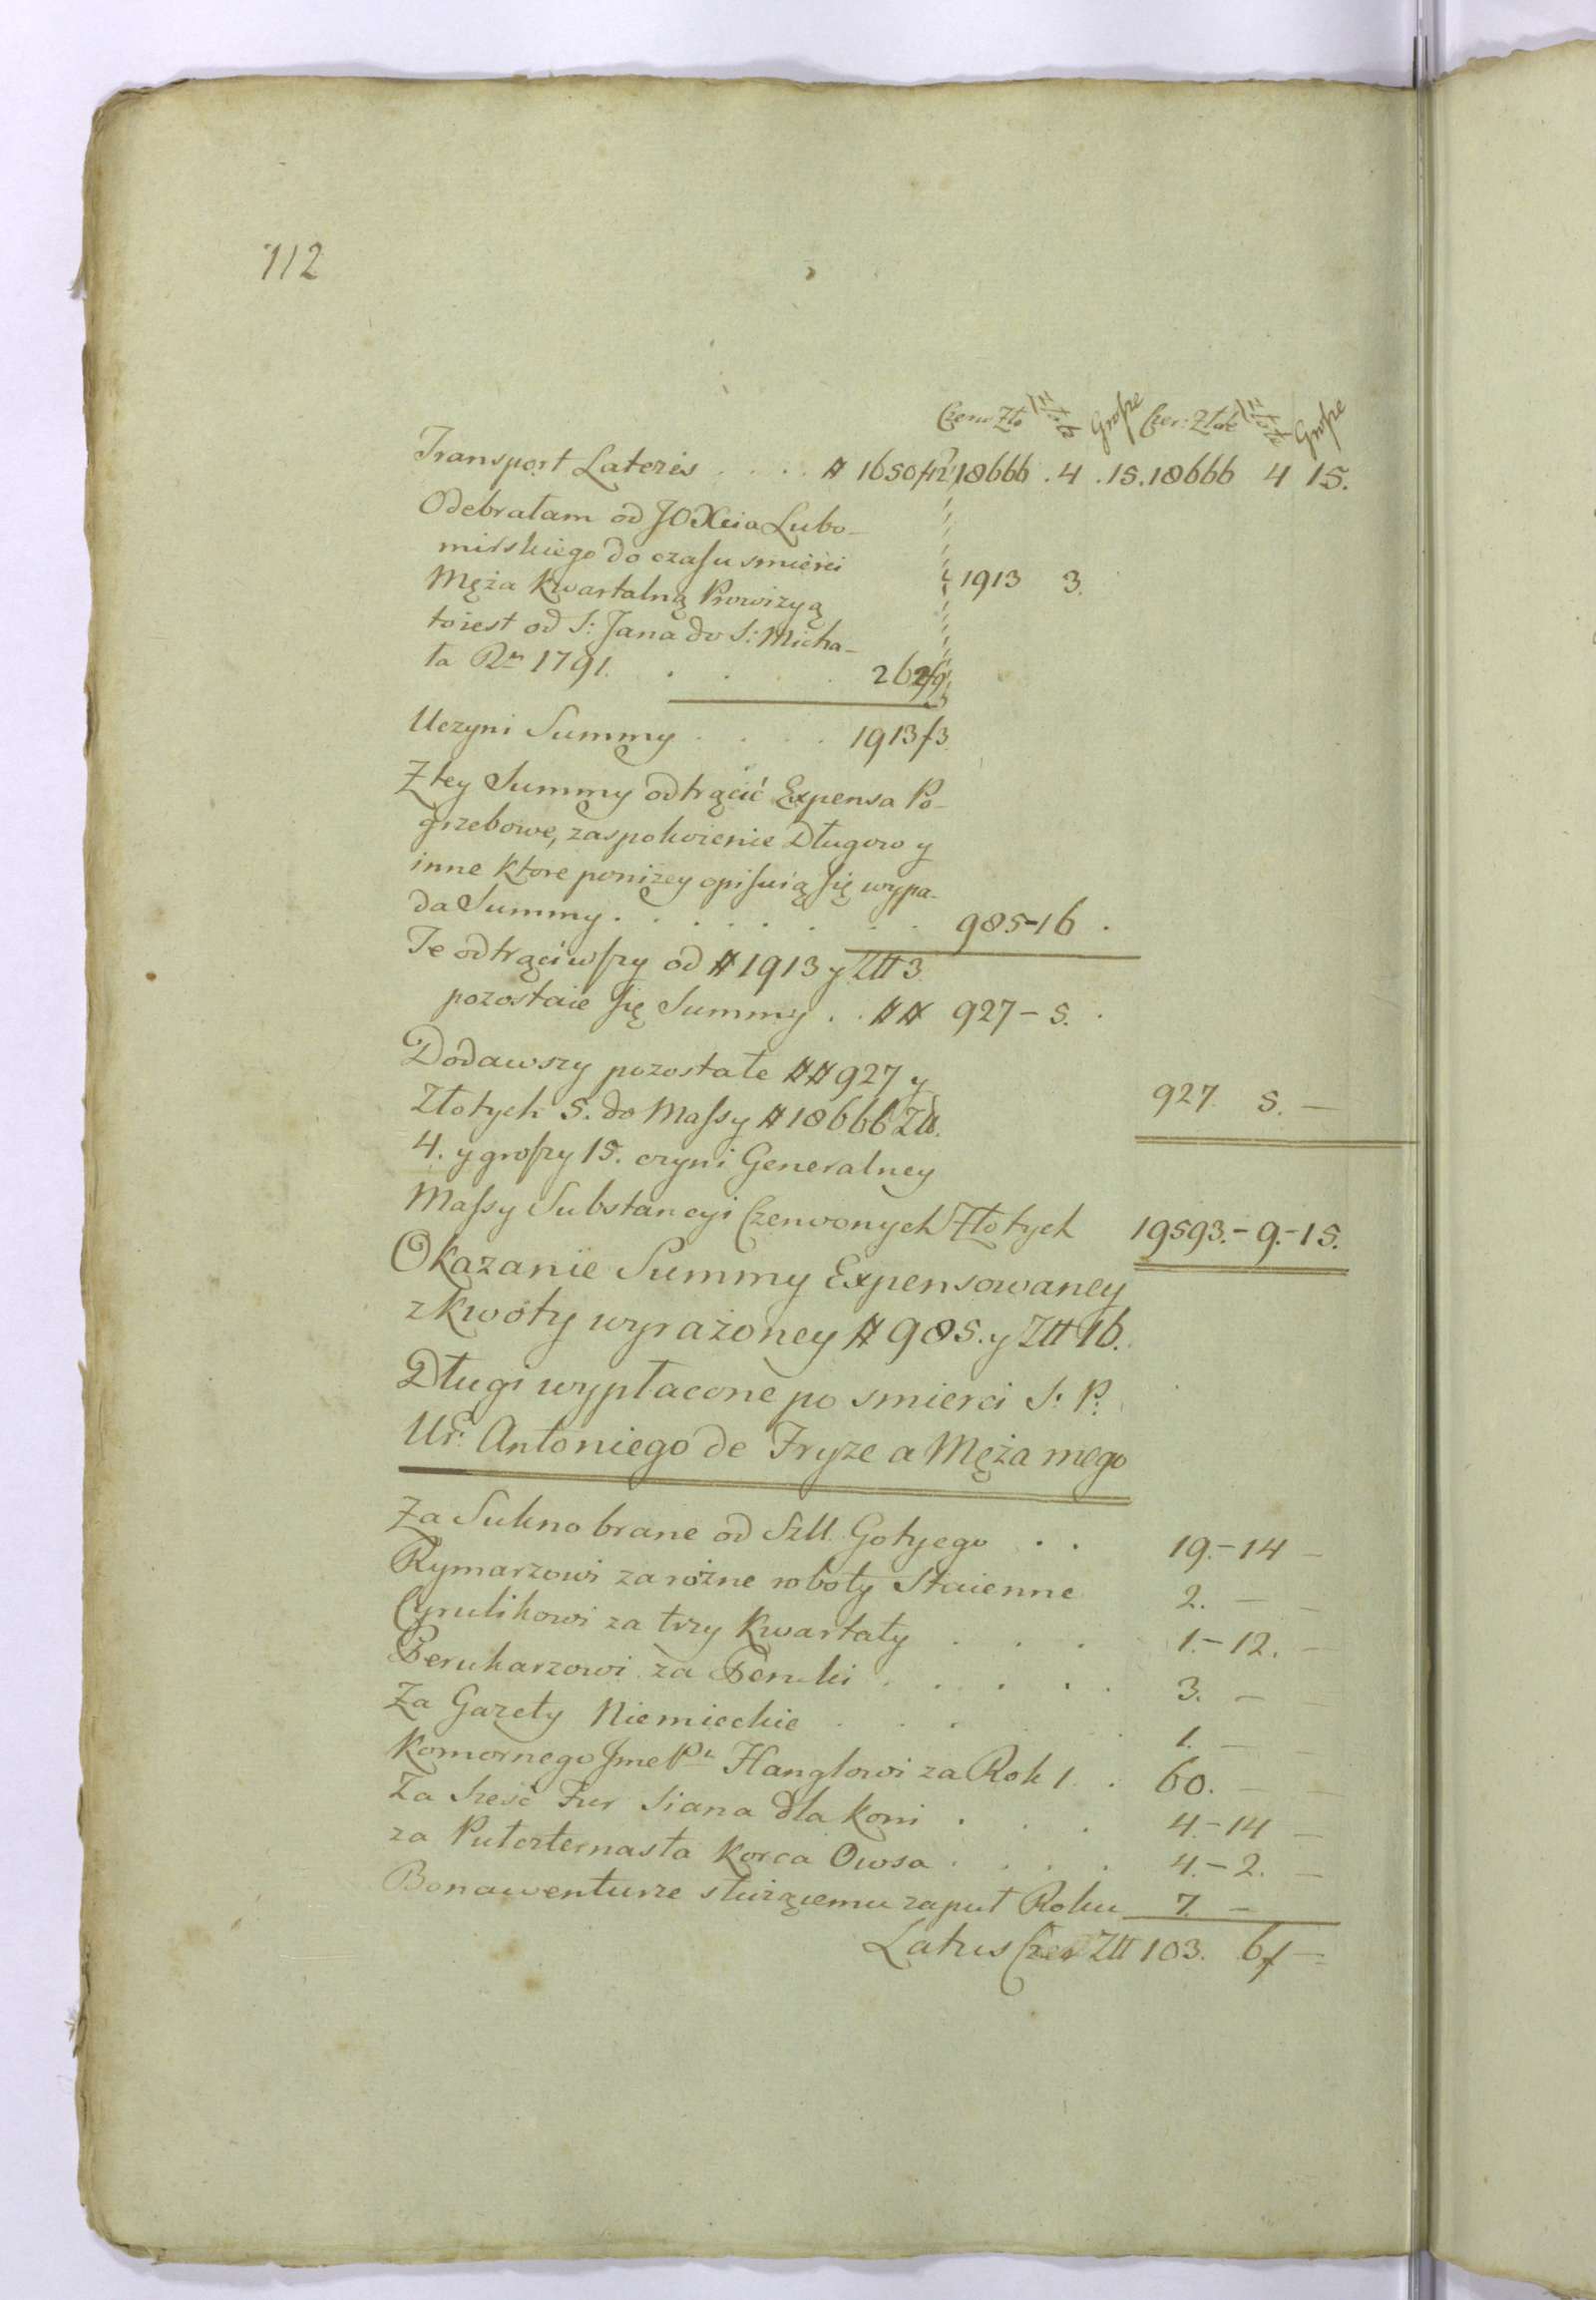 112
Czerw Zło Złote Grosze Czer: Złote Złote Grosze
Transport Lateris . . . . # 1650 f 12 18666 . 4 . 15. 18666 4 15.
Odebrałam od JOXcia Lubo-
mirskiego do czasu smierci
Męża kwartalną Prowizyą 1913 3.
toiest od S: Jana do S: Micha-
ła Rku 1791. . . . . 262 f 9
Uczyni Summy . . . . 1913 f 3
Z tey Summy odtrącić Expensa Po-
grzebowe, zaspokoienie Długow y
inne ktore poniżey opisuią się wypa-
da Summy . . . . . . . 985-16 .
Te odtrąciwszy od # 1913 y Złł 3
pozostaie się Summy . . ## 927 - 5. .
Dodawszy pozostałe ## 927 y
Złotych 5. do Massy # 18666 Złł. 927. 5. —
4. y groszy 15. czyni Generalney
Massy Substancyi Czerwonych Złotych 19593.-9.-15.
Okazanie Summy Expensowaney
z kwoty wyrażoney # 985. y Złł 16.
Długi wypłacone po smierci S: P:
Ur: Antoniego de Fryze a Męża mego
Za Sukno brane od Szll. Gotyego . . 19.-14 —
Rymarzowi za rożne roboty Staienne 2. — —
Cyrulikowi za trzy kwartały . . . 1.-12. —
Perukarzowi za Peruki . . . . . 3. — —
Za Gazety Niemieckie . . . . 1. — —
Komornego Jme Pu Hanglowi za Rok 1 . 60. — —
Za Sześć Fur Siana dla koni . . . 4.-14 —
za Putczternasta korca Owsa . . . . 4.-2. —
Bonawenturze służącemu za puł Roku 7. —
Latus Czer Złł 103. 6 f —